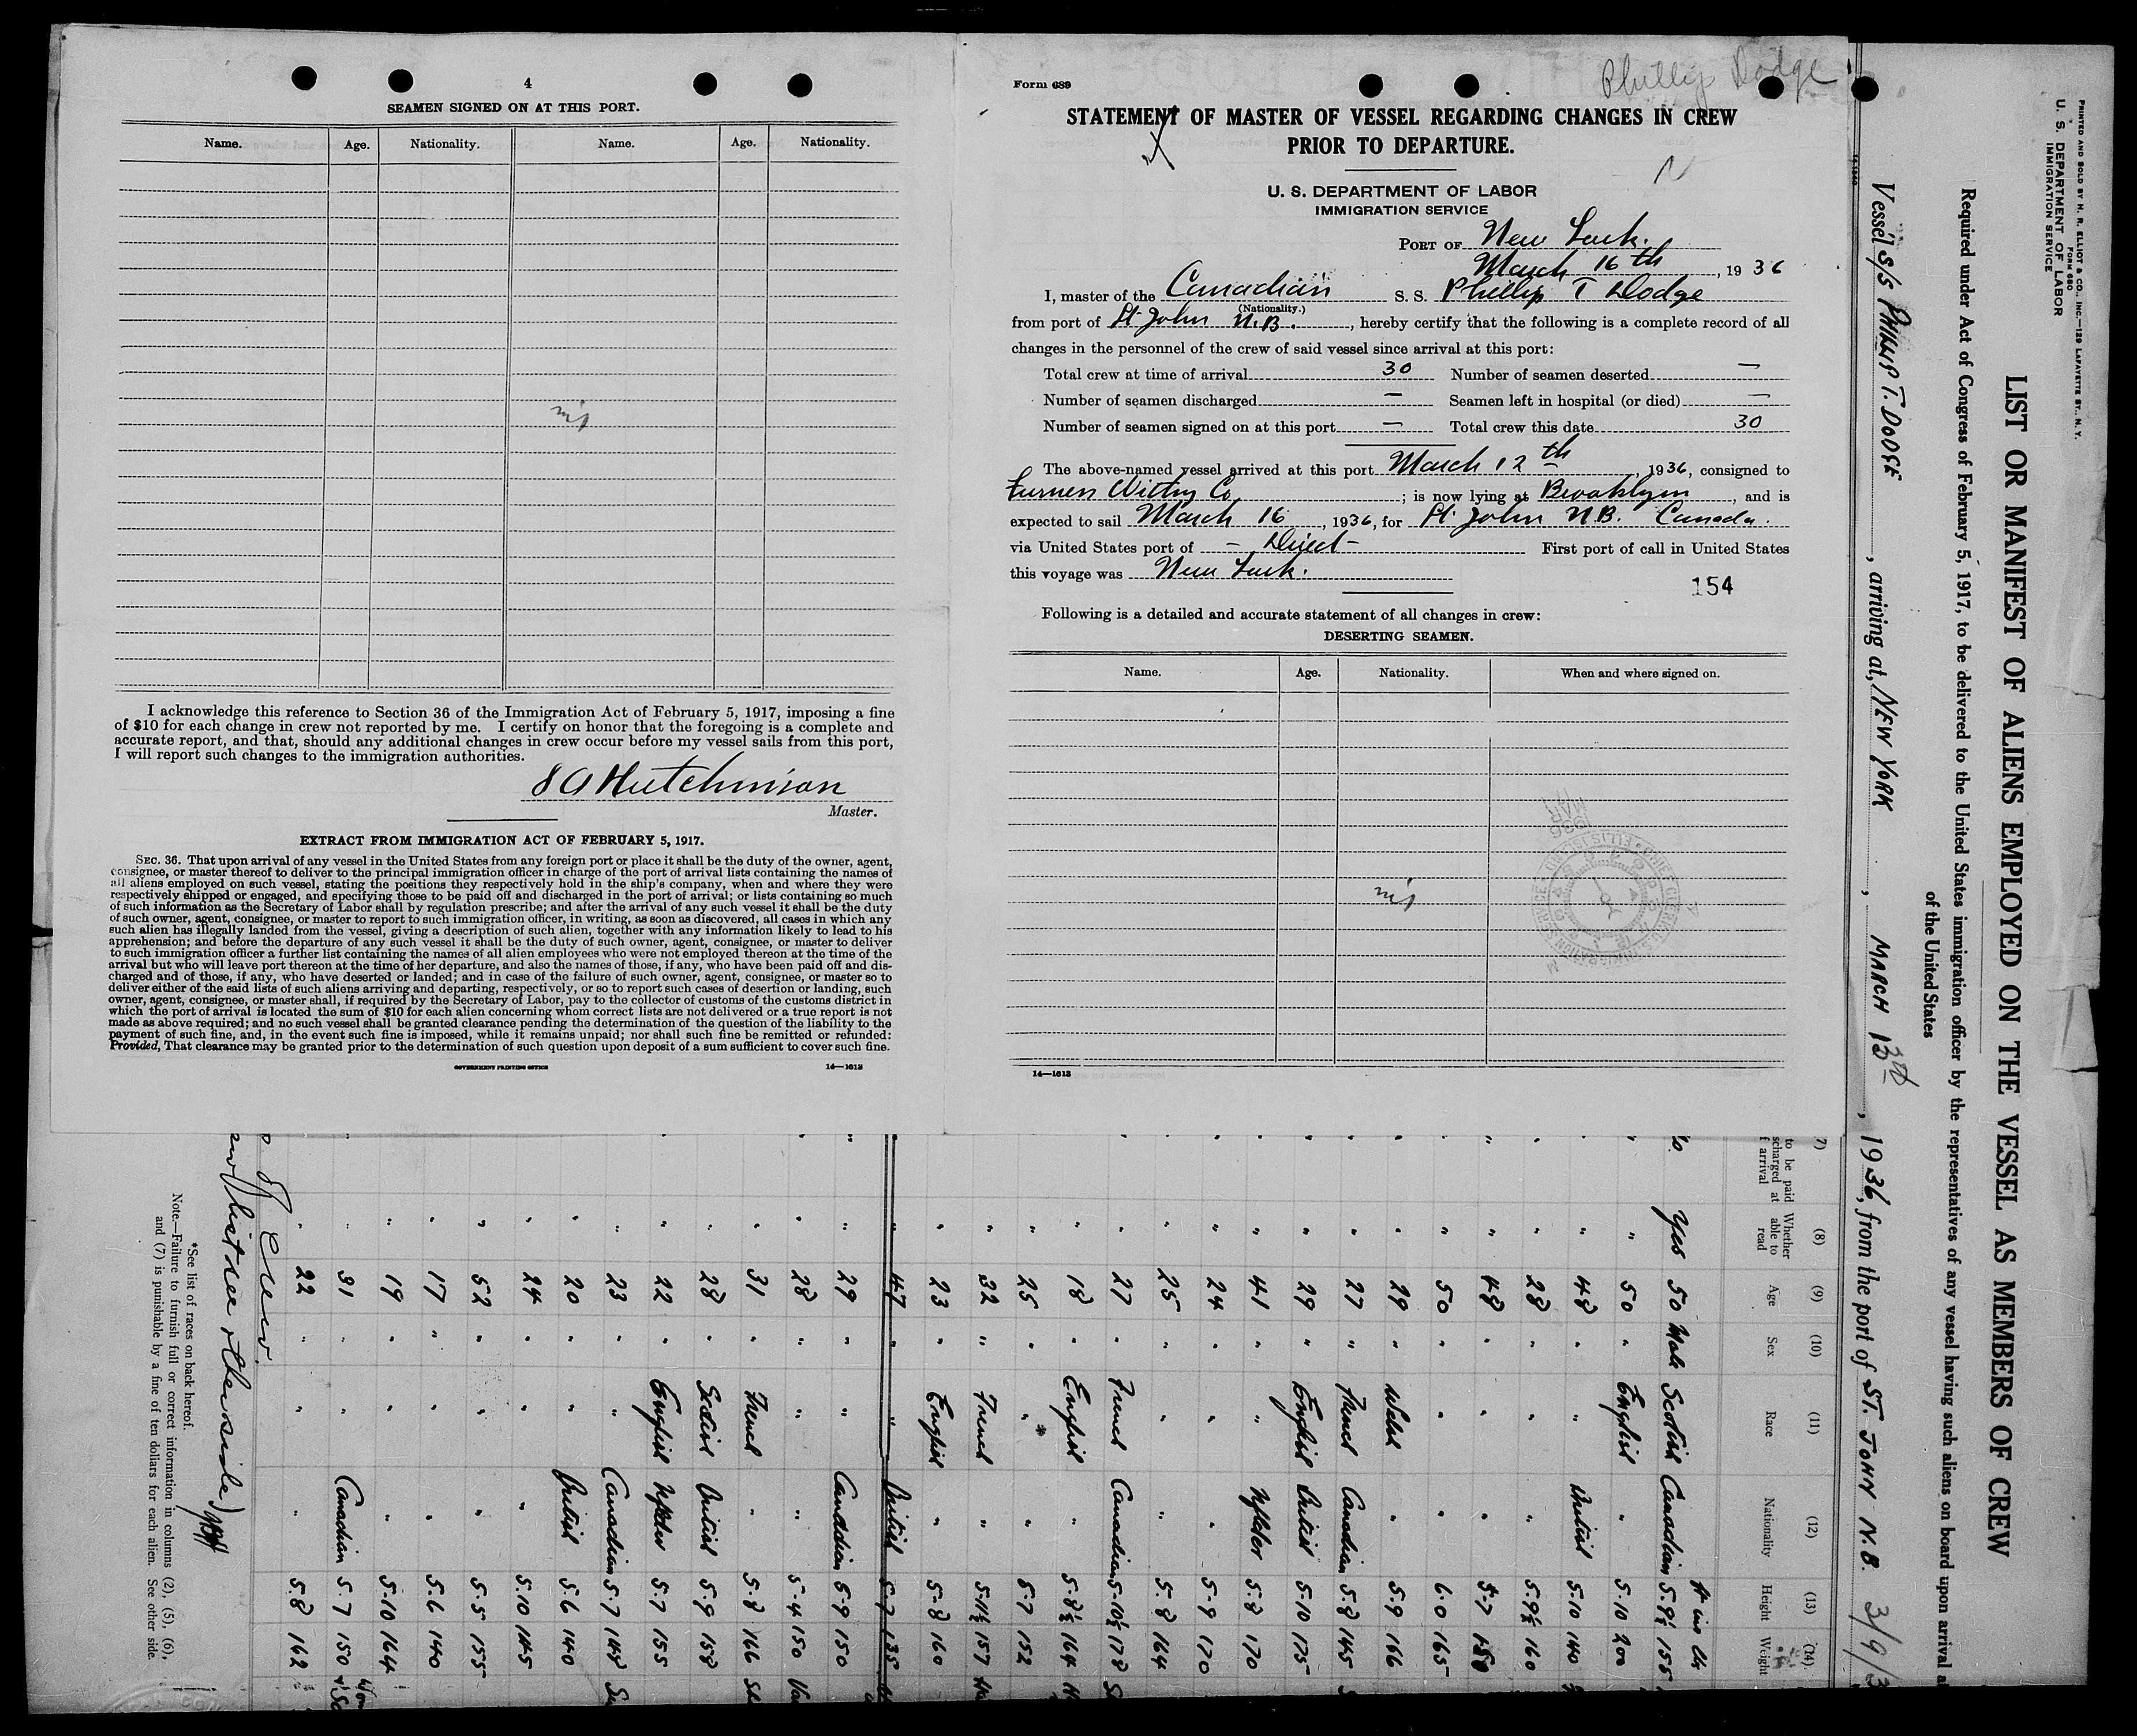 4
SEAMEN SIGNED ON AT THIS PORT.
Name. Age. Nationality. Name. Age. Nationality.
nil
I acknowledge this reference to Section 36 of the Immigration Act of February 5, 1917, imposing a fine
of $10 for each change in crew not reported by me. I certify on honor that the foregoing is a complete and
accurate report, and that, should any additional changes in crew occur before my vessel sails from this port,
I will report such changes to the immigration authorities.
Hutchinson
Master.
EXTRACT FROM IMMIGRATION ACT OF FEBRUARY 5, 1917.
SEC. 36. That upon arrival of any vessel in the United States from any foreign port or place it shall be the duty of the owner, agent,
consignee, or master thereof to deliver to the principal immigration officer in charge of the port of arrival lists containing the names of
all aliens employed on such vessel, stating the positions they respectively hold in the ship's company, when and where they were
respectively shipped or engaged, and specifying those to be paid off and discharged in the port of arrival; or lists containing so much
of such information as the Secretary of Labor shall by regulation prescribe; and after the arrival of any such vessel it shall be the duty
of such owner, agent, consignee, or master to report to such immigration officer, in writing, as soon as discovered, all cases in which any
such alien has illegally landed from the vessel, giving a description of such alien, together with any information likely to lead to his
apprehension; and before the departure of any such vessel it shall be the duty of such owner, agent, consignee, or master to deliver
to such immigration officer a further list containing the names of all alien employees who were not employed thereon at the time of the
arrival but who will leave port thereon at the time of her departure, and also the names of those, if any, who have been paid off and dis-
charged and of those, if any, who have deserted or landed; and in case of the failure of such owner, agent, consignee, or master so to
deliver either of the said lists of such aliens arriving and departing, respectively, or so to report such cases of desertion or landing, such
owner, agent, consignee, or master shall, if required by the Secretary of Labor, pay to the collector of customs of the customs district in
which the port of arrival is located the sum of $10 for each alien concerning whom correct lists are not delivered or a true report is not
made as above required; and no such vessel shall be granted clearance pending the determination of the question of the liability to the
payment of such fine, and, in the event such fine is imposed, while it remains unpaid; nor shall such fine be remitted or refunded:
Provided, That clearance may be granted prior to the determination of such question upon deposit of a sum sufficient to cover such fine.
GOVERNMENT PRINTING OFFICE 14—1613
Form 689
Phillip Dodge
STATEMENT OF MASTER OF VESSEL REGARDING CHANGES IN CREW
PRIOR TO DEPARTURE.
N
U. S. DEPARTMENT OF LABOR
IMMIGRATION SERVICE
PORT OF New York.
March 16 th, 1936
I, master of the Canadian S. S. Phillip T Dodge
(Nationality.)
from port of St. John N.B., hereby certify that the following is a complete record of all
changes in the personnel of the crew of said vessel since arrival at this port:
Total crew at time of arrival 30 Number of seamen deserted —
Number of seamen discharged — Seamen left in hospital (or died) —
Number of seamen signed on at this port — Total crew this date 30
The above-named vessel arrived at this port March 12 th, 1936, consigned to
Furness Withy Co; is now lying at Brooklyn, and is
expected to sail March 16, 1936, for St. John N.B. Canada.
via United States port of – Direct – First port of call in United States
this voyage was New York.
154
Following is a detailed and accurate statement of all changes in crew:
DESERTING SEAMEN.
Name. Age. Nationality. When and where signed on.
nil
14—1613
PRINTED AND SOLD BY H. R. ELLIOT & CO., INC.—129 LAFAYETTE ST., N. Y.
FORM 680
U. S. DEPARTMENT OF LABOR
IMMIGRATION SERVICE
LIST OR MANIFEST OF ALIENS EMPLOYED ON THE VESSEL AS MEMBERS OF CREW
Required under Act of Congress of February 5, 1917, to be delivered to the United States immigration officer by the representatives of any vessel having such aliens on board upon arrival a
of the United States
Vessel S/S PHILLIP T. DODGE, arriving at NEW YORK, MARCH, 1936, from the port of ST. JOHN N.B. 3/9/3
(7) to be paid scharged at f arrival (8) Whether able to read (9) Age (10) Sex (11) Race (12) Nationality (13) Height (14) Weight
ft ins lbs
Yes 50 Male Scotish Canadian 5.9½ 155
" 50 " English " 5.10 200
" 48 " " British 5.10 140
" 28 " " " 5.9½ 160
" 48 " " " 5.7 150
" 50 " " " 6.0 165
" 29 " Welsh " 5.9 166
" 27 " French Canadian 5.8 145
" 29 " English British 5.10 175
" 41 " " Nflder 5.8 170
" 24 " " " 5.9 170
" 25 " " " 5.8 164
" 27 " French Canadian 5.10½ 178
" 18 " English " 5.8½ 164
" 25 " " " 5.7 152
" 32 " French " 5.11½ 157
" 23 " English " 5.8 160
" 47 " " British 5.7 135
" 29 " " Canadian 5.9 150
" 28 " " " 5.4 150
" 31 " French " 5.8 166
" 28 " Scotish British 5.9 158
" 22 " English Nflder 5.7 155
" 23 " " Canadian 5.7 148
" 20 " " British 5.6 140
" 24 " " " 5.10 145
" 52 " " " 5.5 155
" 17 " " " 5.6 140
" 19 " " " 5.10 164
" 31 " " Canadian 5.7 150
" 22 " " " 5.8 162
of Crew.
list see other side)
*See list of races on back hereof.
Note.—Failure to furnish full or correct information in columns (2), (5), (6),
and (7) is punishable by a fine of ten dollars for each alien. See other side.